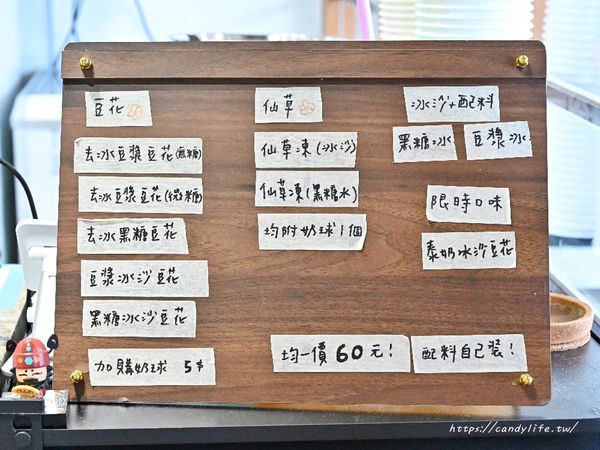 豆花
去冰豆漿豆花(無糖)
去冰豆漿豆花(微糖)
去冰黑糖豆花
豆漿冰沙豆花
黑糖冰沙豆花
加購奶球 5元
仙草
仙草凍(冰沙)
仙草凍(黑糖水)
均附奶球1個
冰沙+配料
黑糖冰
豆漿冰
限時口味
泰奶冰沙豆花
均一價60元!
配料自己裝!
https://candylife.tw/